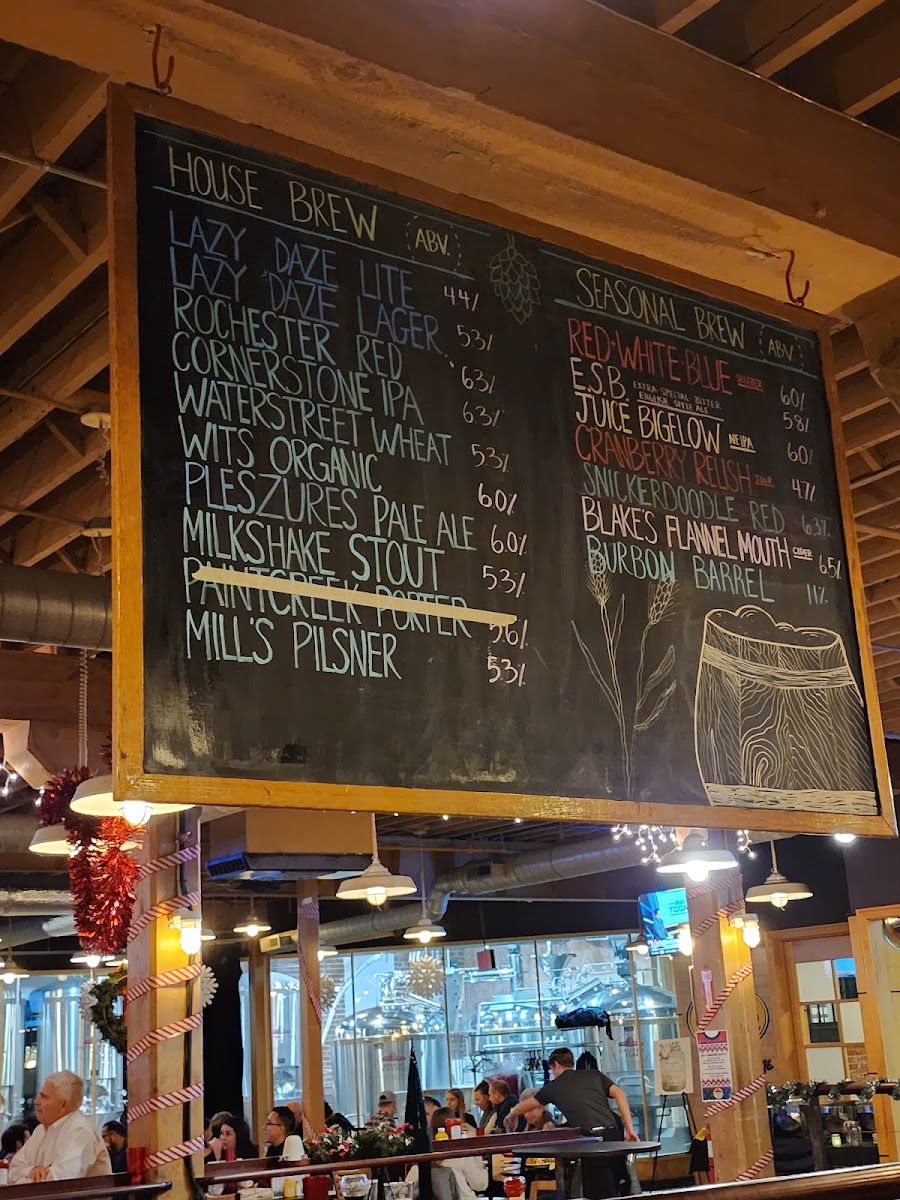 HOUSE BREW ABV.
LAZY DAZE LITE 4.4%
LAZY DAZE LAGER 5.3%
ROCHESTER RED 6.3%
CORNERSTONE IPA 6.3%
WATERSTREET WHEAT 5.3%
WITS ORGANIC 6.0%
PLESZURES PALE ALE 6.0%
MILKSHAKE STOUT 5.3%
PAINTCREEK PORTER 5.6%
MILL'S PILSNER 5.3%
SEASONAL BREW ABV.
RED·WHITE·BLUE SELTZER 6.0%
E.S.B. EXTRA SPECIAL BITTER 5.8%
ENGLISH STYLE ALE
JUICE BIGELOW NEIPA 6.0%
CRANBERRY RELISH SOUR 4.7%
SNICKERDOODLE RED 6.3%
BLAKE'S FLANNEL MOUTH CIDER 6.5%
BURBON BARREL 11%